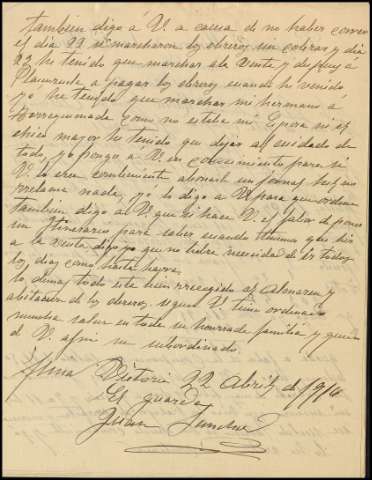 tambien digo á V. a causa de no haber correo
el dia 22 se marcharon los obreros sin cobrar y dia
22 he tenido que marchar a la Venta y despues á
a pagar los obreros cuando he venido,
yo he tenido que marchar mi hermano a
como no estaba mi Esposa ni el
chico mayor he tenido que dejar al cuidado de
todo, yo pongo a V. en conocimiento para si
V. lo cree combeniente abonarle un jornal pues no
reclama nada, yo lo digo a V. para que ordene
tambien digo al V. que si hace V. el fabor de poner
un Itinerario para saber cuando tenemos que hir
a la venta digo yo que no habra necesidad de ir todos
los dias como hasta hayora.
lo demas todo esta bien arreglado el Almacen y
abitacion de los obreros segun V. tiene ordenado
mucha salud en toda su honrada familia y quiera
á V. afmo su subordinado.
Alma Victoria 22 Abril de 1910
El guarda
Juan Sanchez